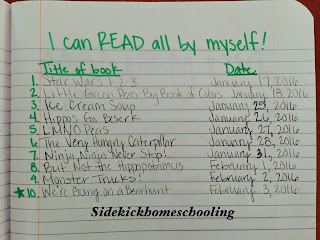 I can READ all by myself!
Title of book Date
1. Star Wars 1-2-3 January 17, 2016
2. Little Green Peas Big Book of Colors January 18, 2016
3. Ice Cream Soup January 25, 2016
4. Hippos Go Beserk January 26, 2016
5. LMNO Peas January 27, 2016
6. The Very Hungry Caterpillar January 28, 2016
7. Ninja, Ninja Never Stop! January 31, 2016
8. But Not the Hippopotamus February 1, 2016
9. Monster Trucks! February 2, 2016
10. We're Going on a Bearhunt February 3, 2016
Sidekickhomeschooling